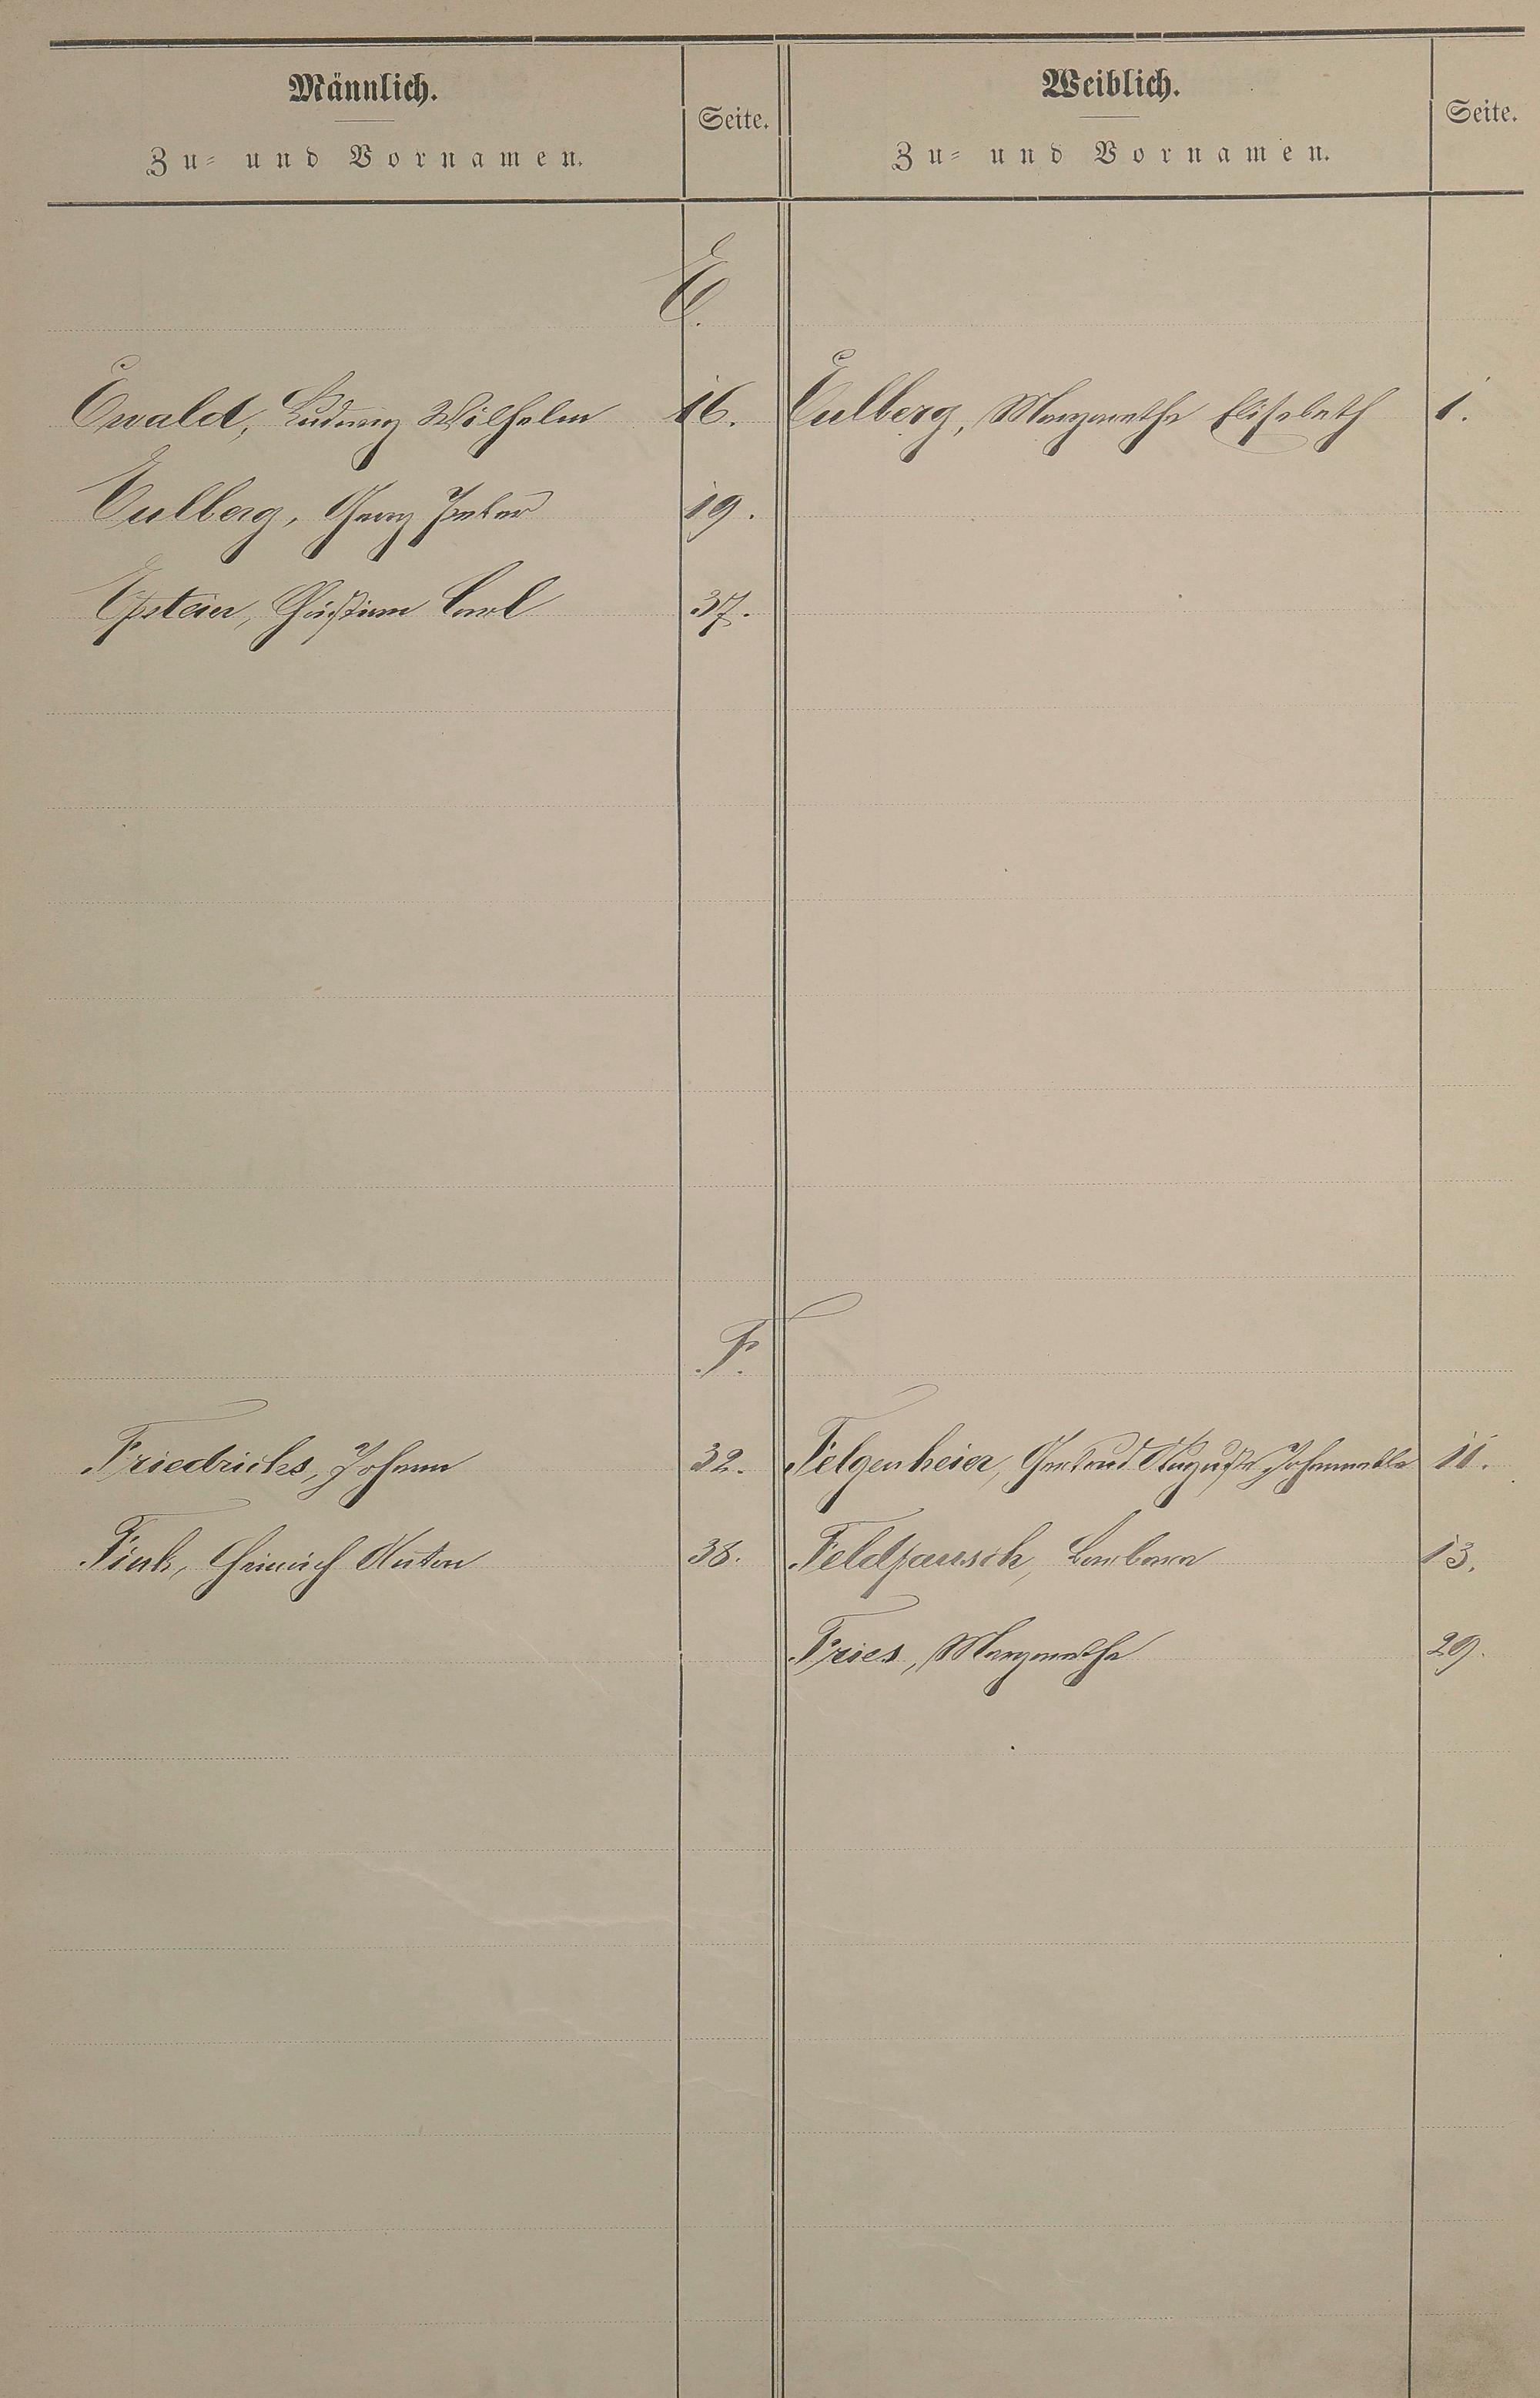 Männlich. Weiblich.
Zu- und Vornamen. Seite. Zu- und Vornamen. Seite.
E.
Ewald, Ludwig Wilhelm 16. Eulberg, Margarethe Elisabeth 1.
Eulberg, Georg Peter 19.
Epstein, Christian Carl 37.
F.
Friedrichs, Johann 32. Felgenheier, Gertrud Auguste Johannetta 11.
Fink, Heinrich Anton 38. Feldpausch, Barbara 13.
Fries, Margaretha 29.